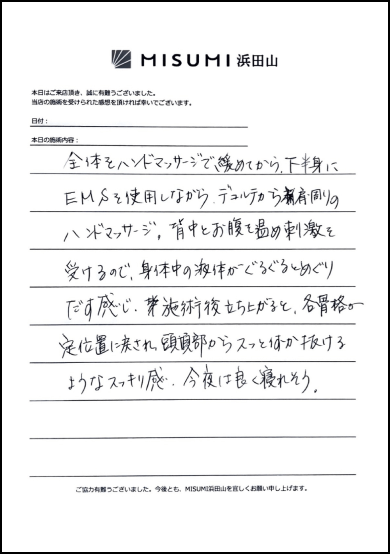 MISUMI 浜田山
本日はご来店頂き、誠に有難うございました。
当店の施術を受けられた感想を頂ければ幸いでございます。
日付：
本日の施術内容：
全体をハンドマッサージで緩めてから、下半身に
EMSを使用しながら、デコルテから肩周りの
ハンドマッサージ。背中とお腹を温め刺激を
受けるので、身体中の液体がぐるぐるとめぐり
だす感じ。施術後立ち上がると、各骨格が
定位置に戻され、頭頂部からスッと何か抜ける
ようなスッキリ感。今夜は良く寝れそう。
ご協力有難うございました。今後とも、MISUMI浜田山を宜しくお願い申し上げます。